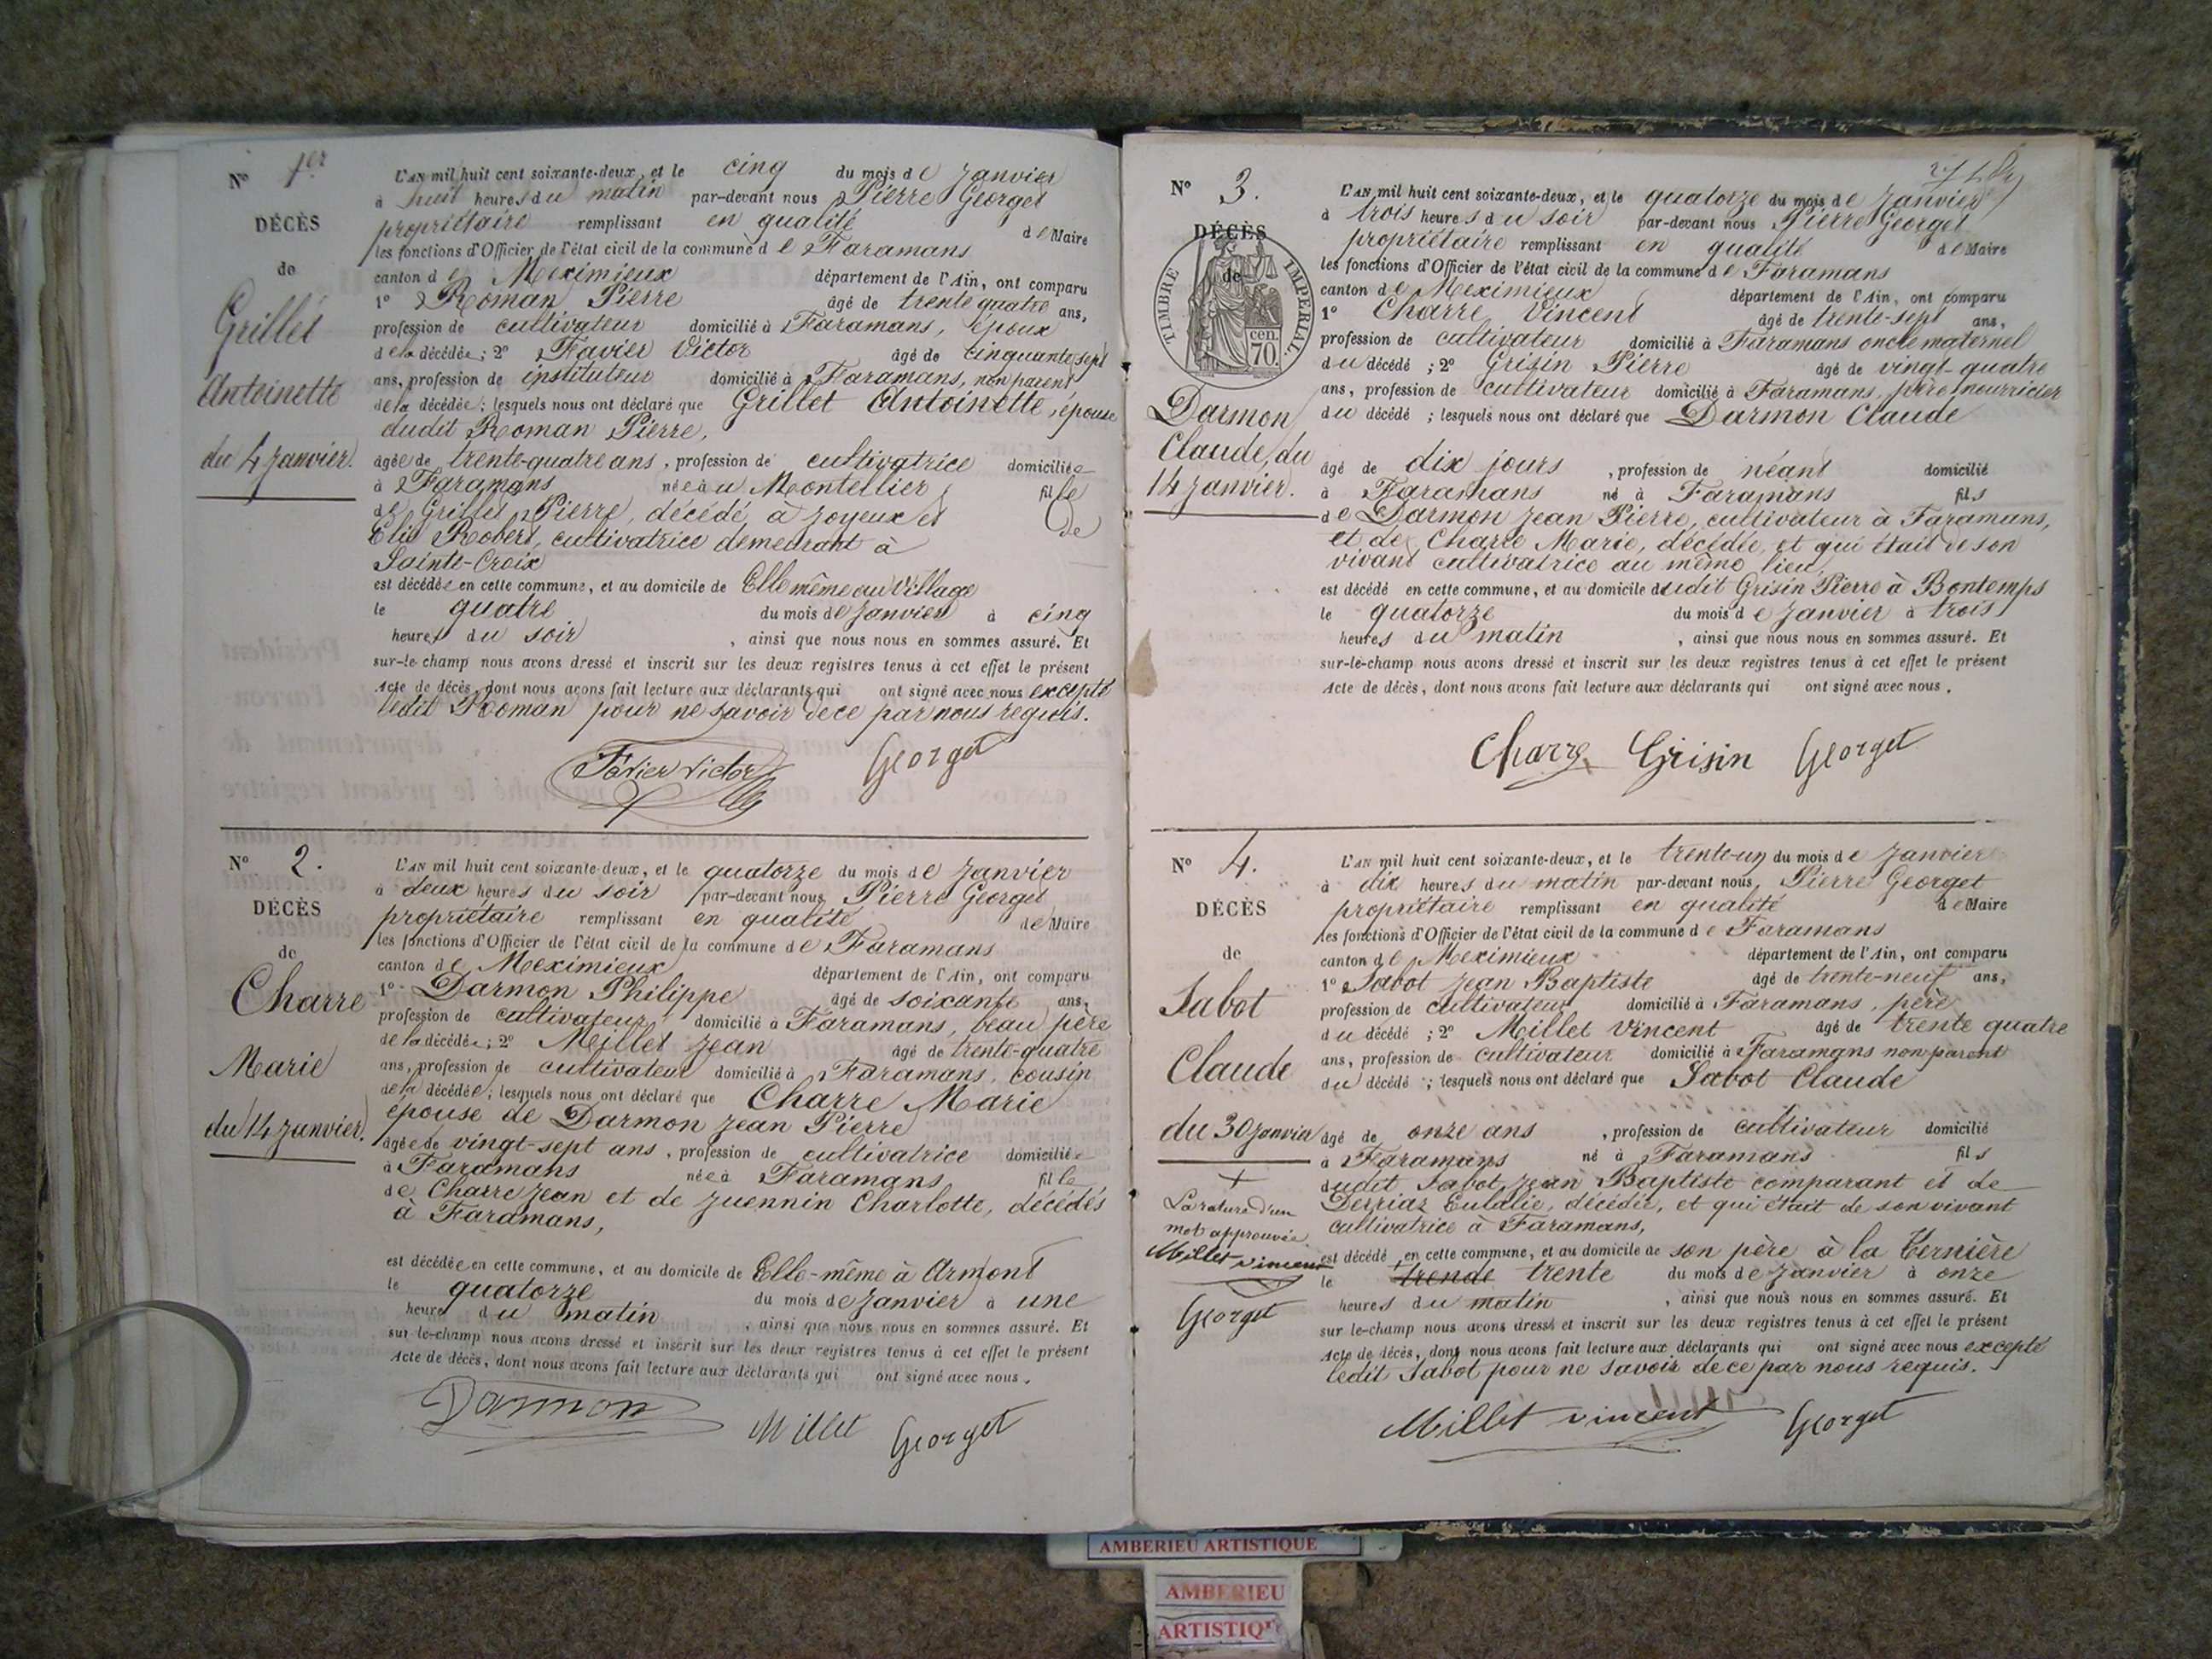 N° 1er
DÉCÈS
de
Grillet
Antoinette
du 4 janvier.
L'AN mil huit cent soixante-deux, et le cinq du mois de janvier
à huit heures du matin par-devant nous Pierre Georget
propriétaire remplissant en qualité de Maire
les fonctions d'Officier de l'état civil de la commune de Faramans
canton de Meximieux département de l'Ain, ont comparu
1° Roman Pierre âgé de trente quatre ans,
profession de cultivateur domicilié à Faramans, époux
de la décédée; 2° Favier Victor âgé de cinquante sept
ans, profession de instituteur domicilié à Faramans, non parent
de la décédée; lesquels nous ont déclaré que Grillet Antoinette, épouse
dudit Roman Pierre,
âgée de trente-quatre ans, profession de cultivatrice domiciliée
à Faramans née à u Montellier fille
de Grillet Pierre, décédé à Joyeux et de
Elie Robert, cultivatrice demeurant à
Sainte-Croix
est décédée en cette commune, et au domicile de Elle même au Village
le quatre du mois de janvier à cinq
heures du soir, ainsi que nous nous en sommes assuré. Et
sur-le-champ nous avons dressé et inscrit sur les deux registres tenus à cet effet le présent
Acte de décès, dont nous avons fait lecture aux déclarants qui ont signé avec nous excepté
ledit Roman pour ne savoir de ce par nous requis.
Favier victor Georget
N° 2.
DÉCÈS
de
Charre
Marie
du 14 janvier.
L'AN mil huit cent soixante-deux, et le quatorze du mois de janvier
à deux heures du soir par-devant nous Pierre Georget
propriétaire remplissant en qualité de Maire
les fonctions d'Officier de l'état civil de la commune de Faramans
canton de Meximieux département de l'Ain, ont comparu
1° Darmon Philippe âgé de soixante ans,
profession de cultivateur domicilié à Faramans, beau père
de la décédée; 2° Millet Jean âgé de trente-quatre
ans, profession de cultivateur domicilié à Faramans, cousin
de la décédée; lesquels nous ont déclaré que Charre Marie
épouse de Darmon Jean Pierre
âgée de vingt-sept ans, profession de cultivatrice domiciliée
à Faramans née à Faramans fille
de Charre Jean et de Juennin Charlotte, décédés
à Faramans,
est décédée en cette commune, et au domicile de Elle-même à Armont
le quatorze du mois de janvier à une
heure du matin, ainsi que nous nous en sommes assuré. Et
sur-le-champ nous avons dressé et inscrit sur les deux registres tenus à cet effet le présent
Acte de décès, dont nous avons fait lecture aux déclarants qui ont signé avec nous.
Darmon Millet Georget
N° 3.
DÉCÈS
de
TIMBRE IMPERIAL
cen.
70.
Darmon
Claude, du
14 janvier.
L'AN mil huit cent soixante-deux, et le quatorze du mois de janvier
à trois heures du soir par-devant nous Pierre Georget
propriétaire remplissant en qualité de Maire
les fonctions d'Officier de l'état civil de la commune de Faramans
canton de Meximieux département de l'Ain, ont comparu
1° Charre Vincent âgé de trente-sept ans,
profession de cultivateur domicilié à Faramans oncle maternel
du décédé; 2° Grisin Pierre âgé de vingt-quatre
ans, profession de cultivateur domicilié à Faramans, père nourricier
du décédé; lesquels nous ont déclaré que Darmon Claude
âgé de dix jours, profession de néant domicilié
à Faramans né à Faramans fils
de Darmon Jean Pierre, cultivateur à Faramans,
et de Charre Marie, décédée, et qui était de son
vivant cultivatrice au même lieu,
est décédé en cette commune, et au domicile dudit Grisin Pierre à Bontemps
le quatorze du mois de janvier à trois
heures du matin, ainsi que nous nous en sommes assuré. Et
sur-le-champ nous avons dressé et inscrit sur les deux registres tenus à cet effet le présent
Acte de décès, dont nous avons fait lecture aux déclarants qui ont signé avec nous.
Charre Grisin Georget
N° 4.
DÉCÈS
de
Sabot
Claude
du 30 janvier
+
La rature d'un
mot approuvée
Millet vincent
Georget
L'AN mil huit cent soixante-deux, et le trente-un du mois de janvier
à dix heures du matin par-devant nous, Pierre Georget
propriétaire remplissant en qualité de Maire
les fonctions d'Officier de l'état civil de la commune de Faramans
canton de Meximieux département de l'Ain, ont comparu
1° Sabot Jean Baptiste âgé de trente-neuf ans,
profession de cultivateur domicilié à Faramans, père
du décédé; 2° Millet Vincent âgé de trente quatre
ans, profession de cultivateur domicilié à Faramans non parent
du décédé; lesquels nous ont déclaré que Sabot Claude
âgé de onze ans, profession de cultivateur domicilié
à Faramans né à Faramans fils
dudit Sabot Jean Baptiste comparant et de
Derriaz Eulalie, décédée, et qui était de son vivant
cultivatrice à Faramans,
est décédé en cette commune, et au domicile de son père à la Ternière
le trende trente du mois de janvier à onze
heures du matin, ainsi que nous nous en sommes assuré. Et
sur le-champ nous avons dressé et inscrit sur les deux registres tenus à cet effet le présent
Acte de décès, dont nous avons fait lecture aux déclarants qui ont signé avec nous excepté
ledit Sabot pour ne savoir de ce par nous requis.
Millet vincent Georget
AMBERIEU ARTISTIQUE
AMBERIEU
ARTISTIQUE